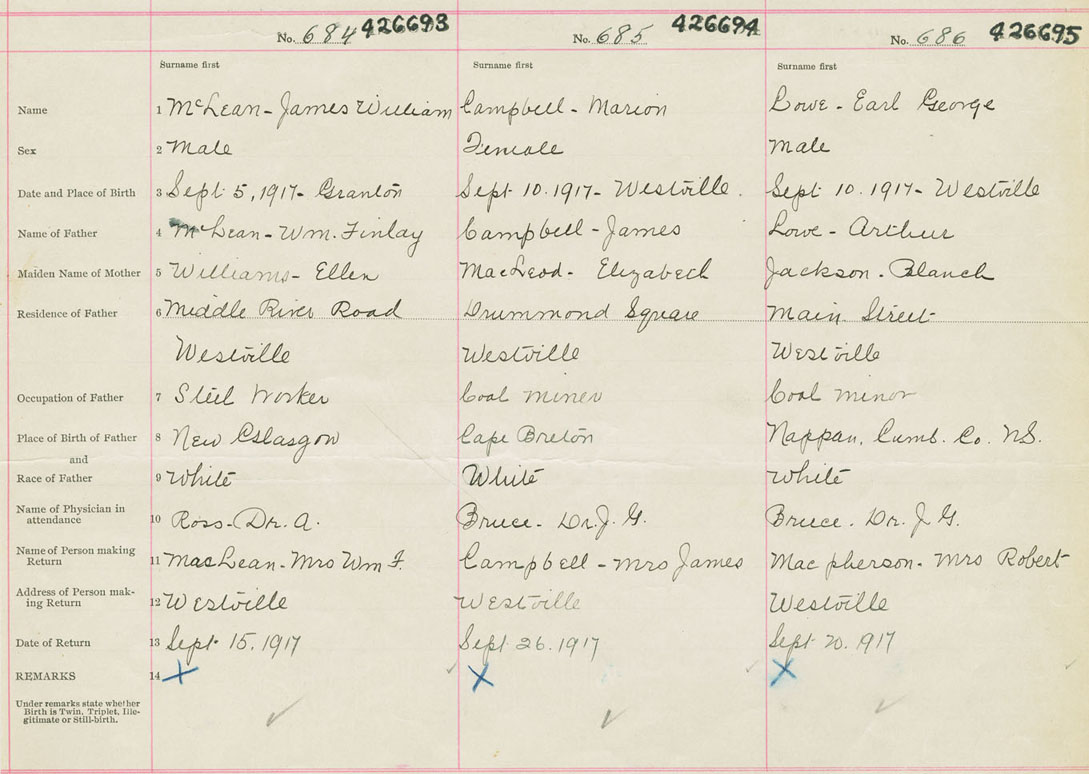 No. 684 426693 No. 685 426694 No. 686 426695
Surname first Surname first Surname first
Name 1 McLean - James William Campbell - Marion Lowe - Earl George
Sex 2 Male Female Male
Date and Place of Birth 3 Sept 5, 1917 - Granton Sept 10. 1917 - Westville. Sept 10. 1917 - Westville
Name of Father 4 McLean - Wm. Finlay Campbell - James Lowe - Arthur
Maiden Name of Mother 5 Williams - Ellen MacLeod - Elizabeth Jackson - Blanch
Residence of Father 6 Middle River Road Drummond Square Main Street
Westville Westville Westville
Occupation of Father 7 Steel Worker Coal miner Coal minor
Place of Birth of Father 8 New Glasgow Cape Breton Nappan, Cumb. Co. N.S.
and
Race of Father 9 White White White
Name of Physician in
attendance 10 Ross - Dr. A. Bruce - Dr. J. G. Bruce. Dr. J G.
Name of Person making
Return 11 MacLean - Mrs Wm F. Campbell - Mrs James Macpherson - Mrs Robert
Address of Person mak-
ing Return 12 Westville Westville Westville
Date of Return 13 Sept 15. 1917 Sept 26. 1917 Sept 20. 1917
REMARKS 14 X X X
Under remarks state whether
Birth is Twin, Triplet, Ille-
gitimate or Still-birth.